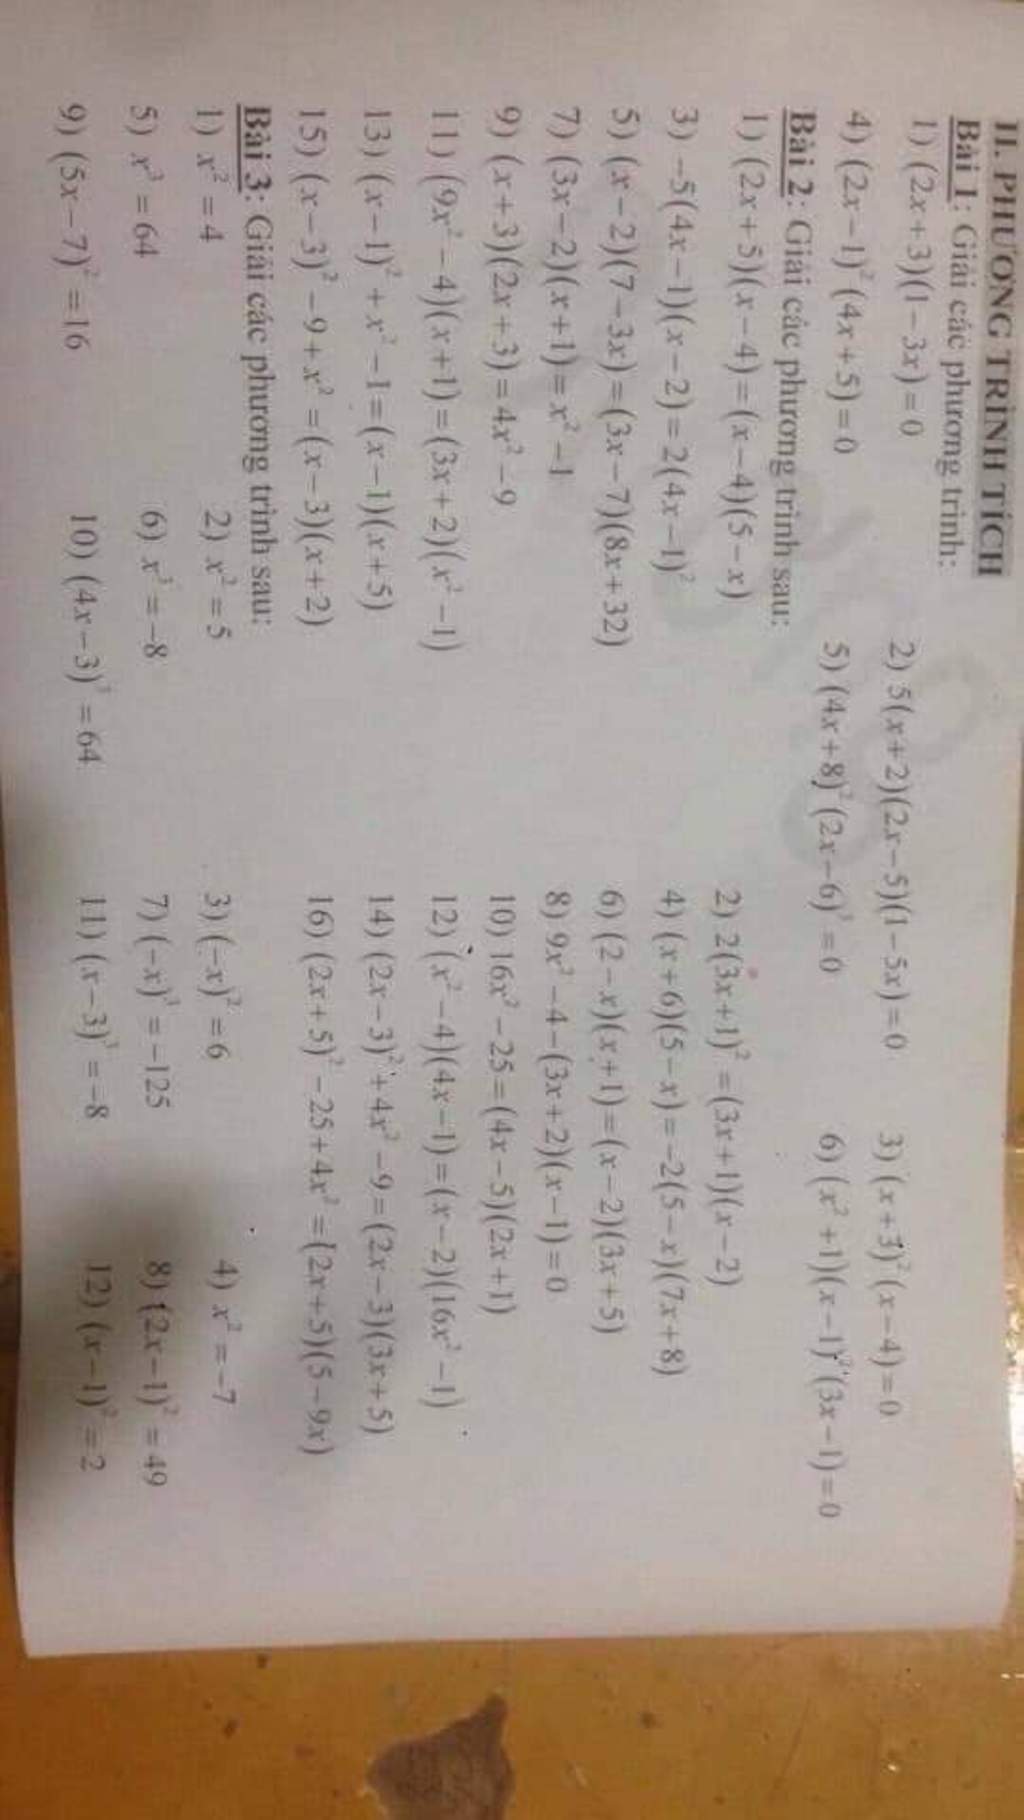 II. PHƯƠNG TRÌNH TÍCH
Bài 1: Giải các phương trình:
1) (2x+3)(1−3x)=0 2) 5(x+2)(2x−5)(1−5x)=0 3) (x+3)²(x−4)=0
4) (2x−1)²(4x+5)=0 5) (4x+8)²(2x−6)³=0 6) (x²+1)(x−1)²(3x−1)=0
Bài 2: Giải các phương trình sau:
1) (2x+5)(x−4)=(x−4)(5−x) 2) 2(3x+1)²=(3x+1)(x−2)
3) −5(4x−1)(x−2)=2(4x−1)² 4) (x+6)(5−x)=−2(5−x)(7x+8)
5) (x−2)(7−3x)=(3x−7)(8x+32) 6) (2−x)(x+1)=(x−2)(3x+5)
7) (3x−2)(x+1)=x²−1 8) 9x²−4−(3x+2)(x−1)=0
9) (x+3)(2x+3)=4x²−9 10) 16x²−25=(4x−5)(2x+1)
11) (9x²−4)(x+1)=(3x+2)(x²−1) 12) (x²−4)(4x−1)=(x−2)(16x²−1)
13) (x−1)²+x²−1=(x−1)(x+5) 14) (2x−3)²+4x²−9=(2x−3)(3x+5)
15) (x−3)²−9+x²=(x−3)(x+2) 16) (2x+5)²−25+4x²=(2x+5)(5−9x)
Bài 3: Giải các phương trình sau:
1) x²=4 2) x²=5 3) (−x)²=6 4) x²=−7
5) x³=64 6) x³=−8 7) (−x)³=−125 8) (2x−1)²=49
9) (5x−7)²=16 10) (4x−3)³=64 11) (x−3)³=−8 12) (x−1)²=2